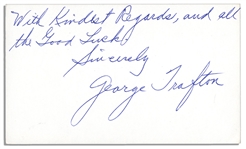 With Kindest Regards, and all
the Good Luck,
Sincerely
George Trafton